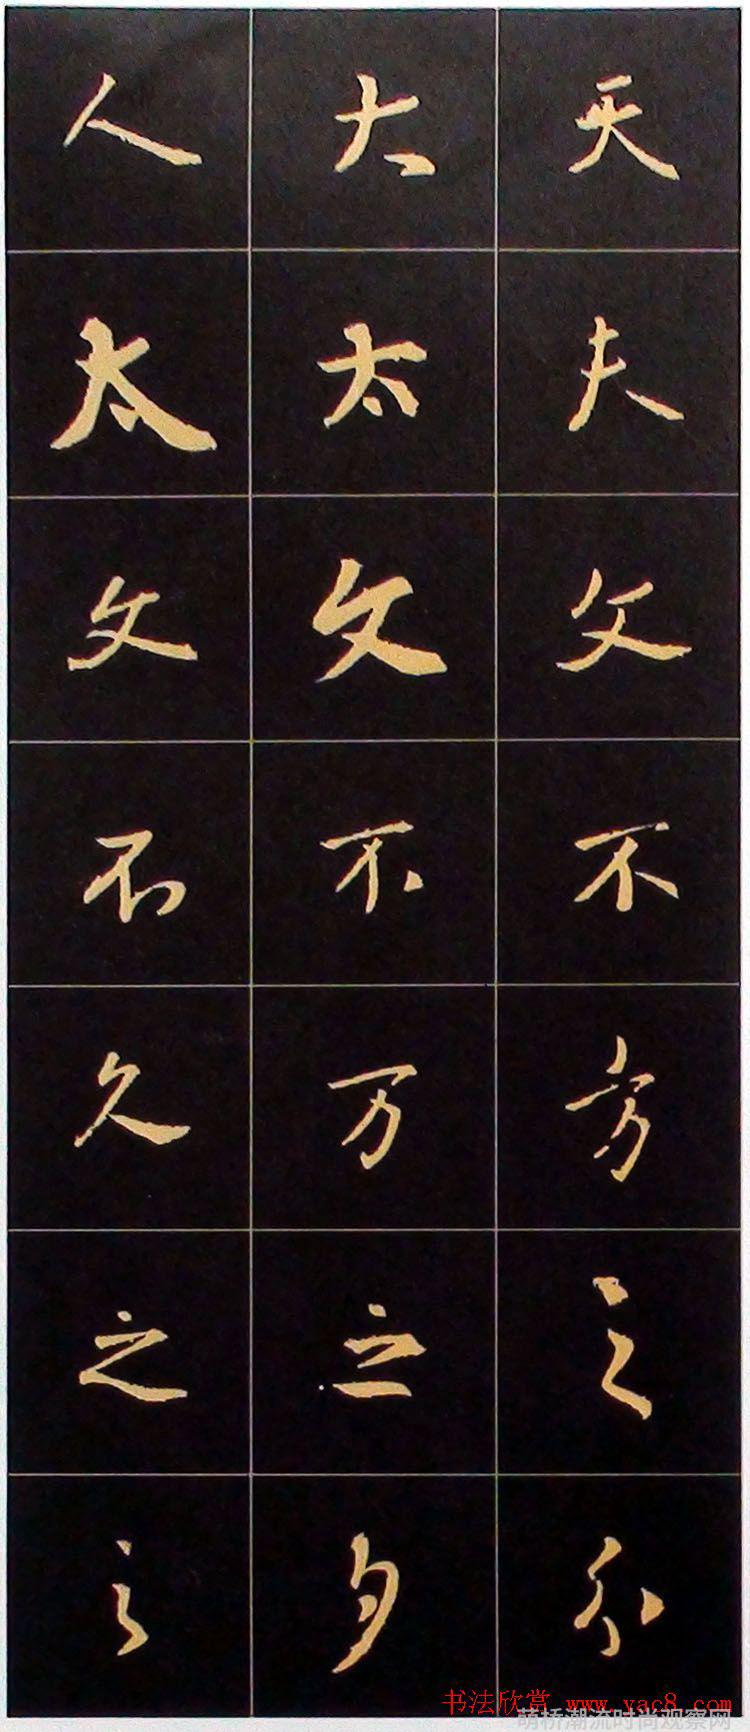 人 大 天
太 太 夫
文 文 父
不 不 不
久 万 方
之 之 之
之 月 不
书法欣赏 www.yac8.com
萌桥潮流时尚观察网